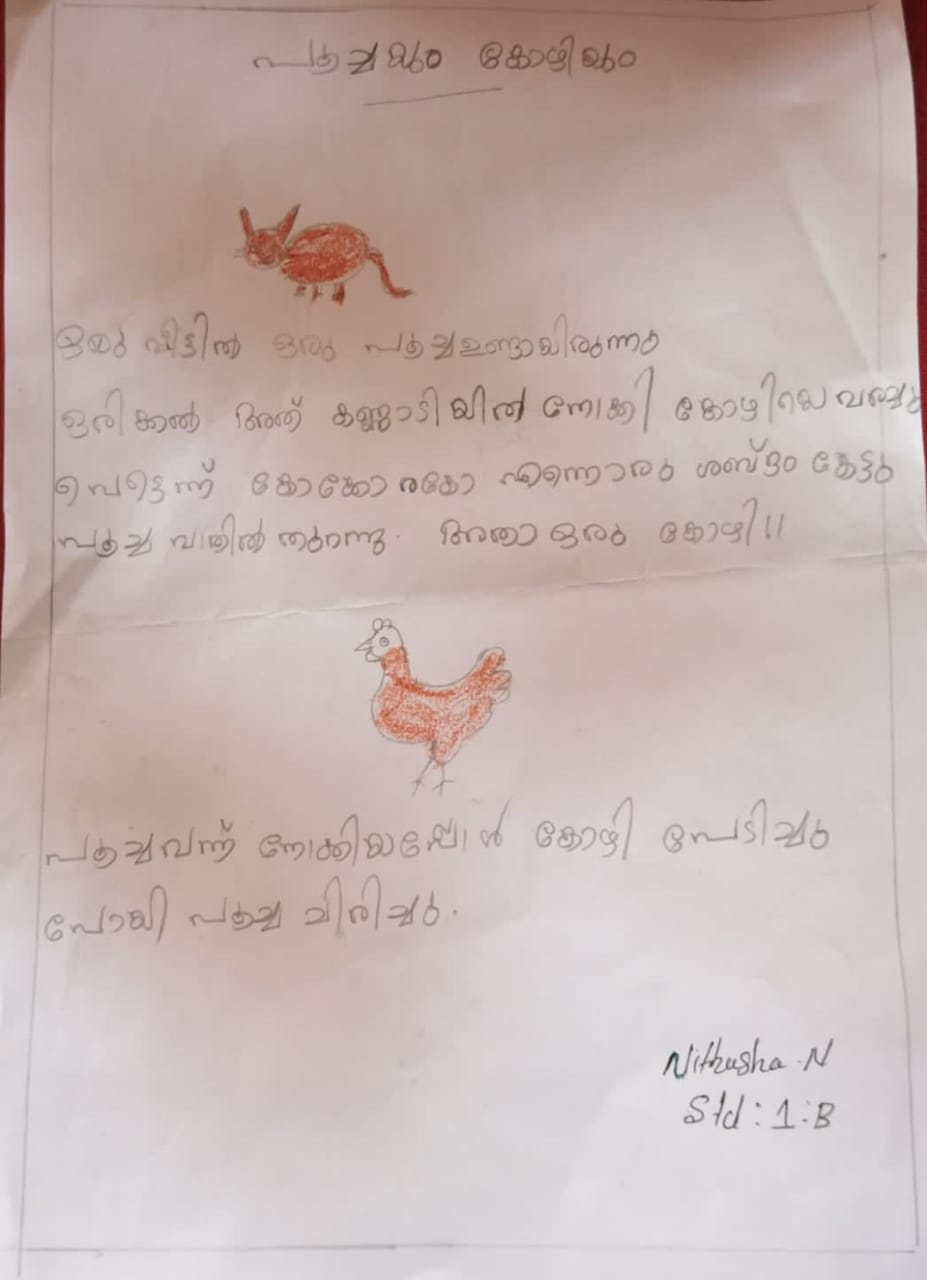 പൂച്ചയും കോഴിയും
ഒരു വീട്ടിൽ ഒരു പൂച്ച ഉണ്ടായിരുന്നു
ഒരിക്കൽ അത് കണ്ണാടിയിൽ നോക്കി കോഴിയെ വരച്ചു
പെട്ടെന്ന് കോക്കോരകോ എന്നൊരു ശബ്ദം കേട്ടു
പൂച്ച വാതിൽ തുറന്നു. അതാ ഒരു കോഴി!!
പൂച്ച വന്ന് നോക്കിയപ്പോൾ കോഴി പേടിച്ചു
പോയി പൂച്ച ചിരിച്ചു.
Nithusha .N
Std : 1:B